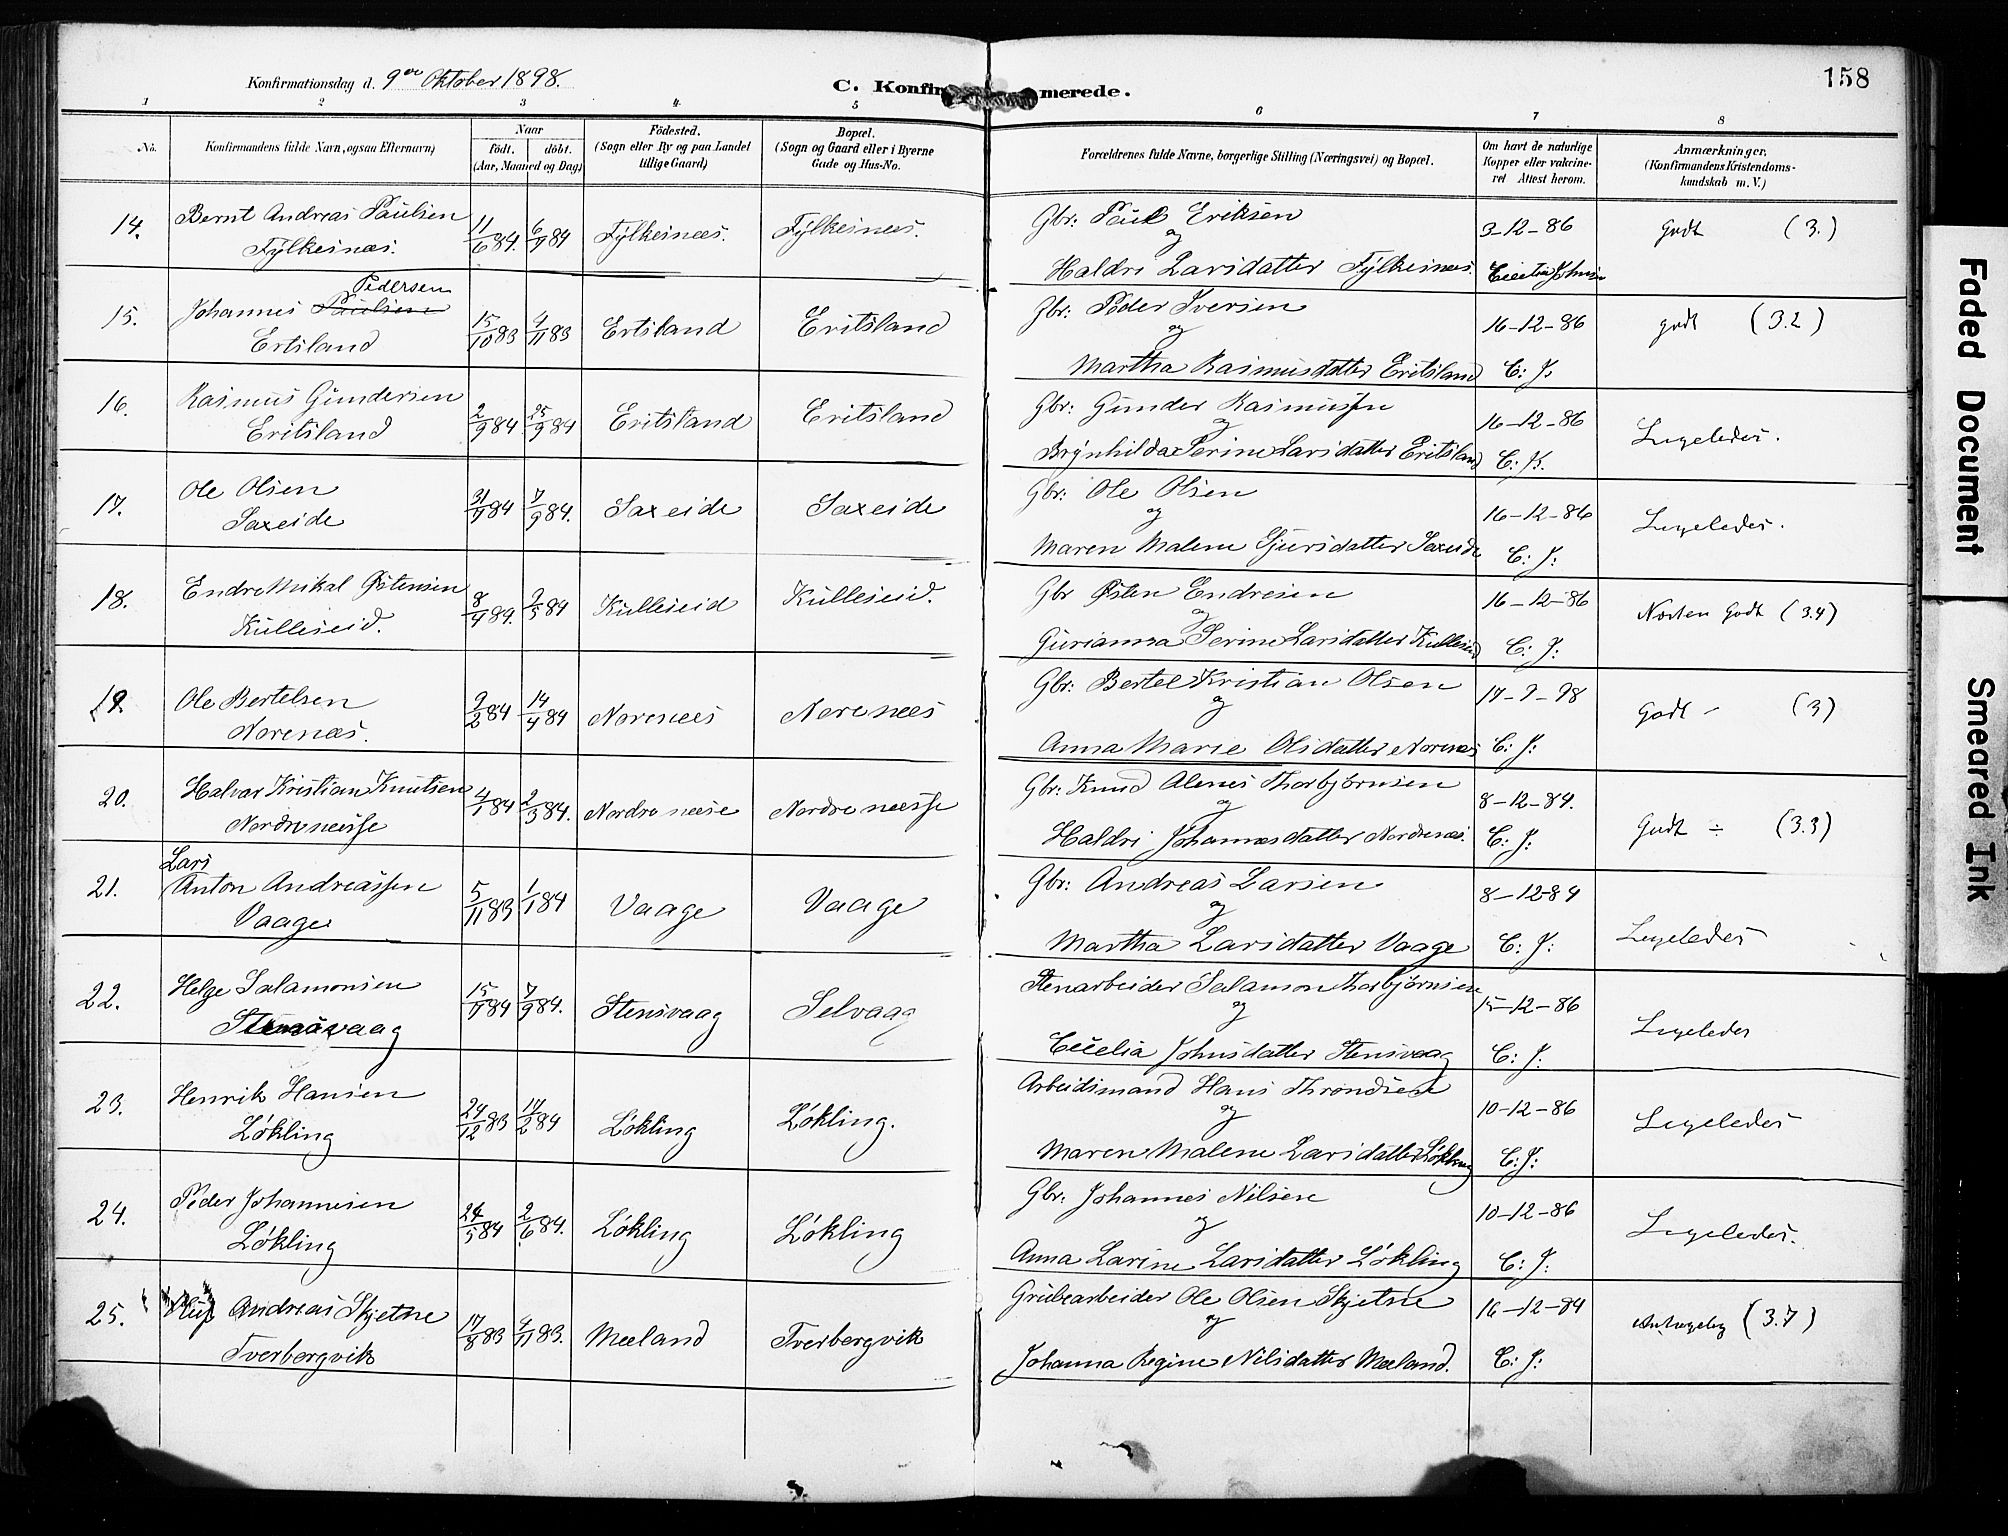 Konfirmationsdag d. 9de Oktober 1898.
C. Konfirmerede.
158
1 2 3 4 5 6 7 8
No. Konfirmandens fulde Navn, ogsaa Efternavn) Naar födt. döbt. (Aar, Maaned og Dag) Födested. (Sogn eller By og paa Landet tillige Gaard) Bopæl. (Sogn og Gaard eller i Byerne Gade og Hus-No. Forældrenes fulde Navne, borgerlige Stilling (Næringsvei) og Bopæl. Om havt de naturlige Kopper eller vakcineret Attest herom. Anmærkninger, (Konfirmandens Kristendomskundskab m. V.)
14. Bernt Andreas Paulsen 11/6 84. 6/7 84 Fylkesnæs. Fylkesnæs. Gbr: Paul Eriksen 3-12-86 Godt (3.)
Fylkesnæs. og
Haldri Larsdatter Fylkesnæs. Cecelia Johnsen
Pedersen
15. Johannes Paulsen 15/10 83 4/11 83 Ertsland Eritsland Gbr: Peder Iversen 16-12-86 godt (3.2)
Ertsland og
Martha Rasmusdatter Eritsland C: J.
16. Rasmus Gundersen 2/9 84. 25/9 84 Eritsland Eritsland Gbr: Gunder Rasmussen 16-12-86 Ligeledes.
Eritsland og
Brynhilda Serine Larsdatter Eritsland C: J.
17. Ole Olsen 7/9 84. Saxeide Saxeide Gbr: Ole Olsen 16-12-86 Ligeledes.
Saxeide og
Maren Malene Sjursdatter Saxeide C: J:
18. Endre Mikal Østensen 8/4 84. 2/5 84 Kulleseid Kulleseid. Gbr Østen Endresen 16-12-86 Næsten Godt (3.4)
Kulleseid. og
Gurianna Serine Larsdatter Kulleseid C: J:
19. Ole Bertelsen 9/2 84 14/4 84 Norenæs Norenæs Gbr: Bertel Kristian Olsen 17-9-98 Godt - (3)
Norenæs. og
Anna Marie Olsdatter Norenæs C: J:
20. Halvar Kristian Knutsen 4/1 84 2/3 84. Nordrenæse Nordrenæsse Gbr: Knud Alenes Thorbjørnsen 8-12-84. Godt ÷ (3.3)
Nordrenæsse og
Haldri Johannesdatter Nordrenæs. C: J:
Lars
21. Anton Andreassen 5/11 83 1/1 84 Vaage Vaage Gbr: Andreas Larsen 8-12-84 Ligeledes
Vaage og
Martha Larsdatter Vaage C: J:
22. Helge Salamonsen 7/9 84. Stensvaag Selvaag Stenarbeider Salamon Thorbjørnsen 15-12-86 Ligeledes
Stensvaag og
Cecelia Johnsdatter Stensvaag C: J:
23. Henrik Hansen 24/12 83 17/2 84 Løkling Løkling. Arbeidsmand Hans Throndsen 10-12-86 Ligeledes
Løkling og
Maren Malene Larsdatter Løkling C: J:
24. Peder Johannesen 24/5 84 2/6 84. Løkling Løkling Gbr: Johannes Nilsen 10-12-86 Ligeledes.
Løkling og
Anna Larine Larsdatter Løkling C: J.
25. Andreas Skjetne 17/8 83 4/11 83. Mæland Tverbergvik Grubearbeider Ole Olsen Skjetne 16-12-84 Antagelig (3.7)
Tverbergvik og
Johanna Regine Nilsdatter Mæland. C: J:
Faded Document
Smeared Ink